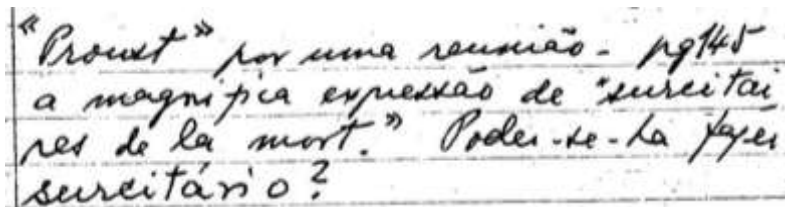 "Proust" por uma reunião - pg 145
a magnifica expressão de "surcitai
res de la mort." Poder-se-ha fazer
surcitário?